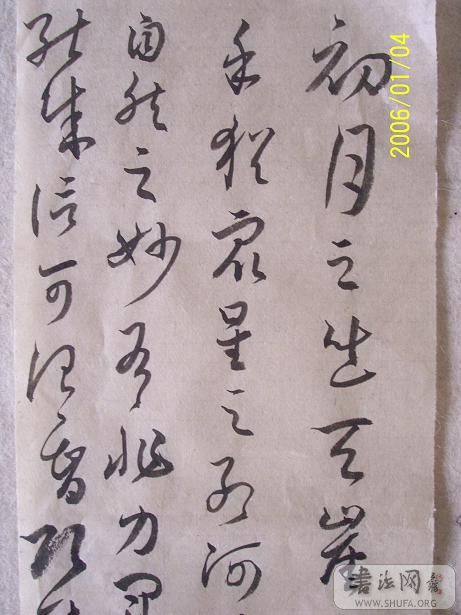 初月之出天崖
乎猶眾星之列河
自然之妙有非力運
能成信可謂智巧
2006/01/04
書法网
WWW.SHUFA.ORG